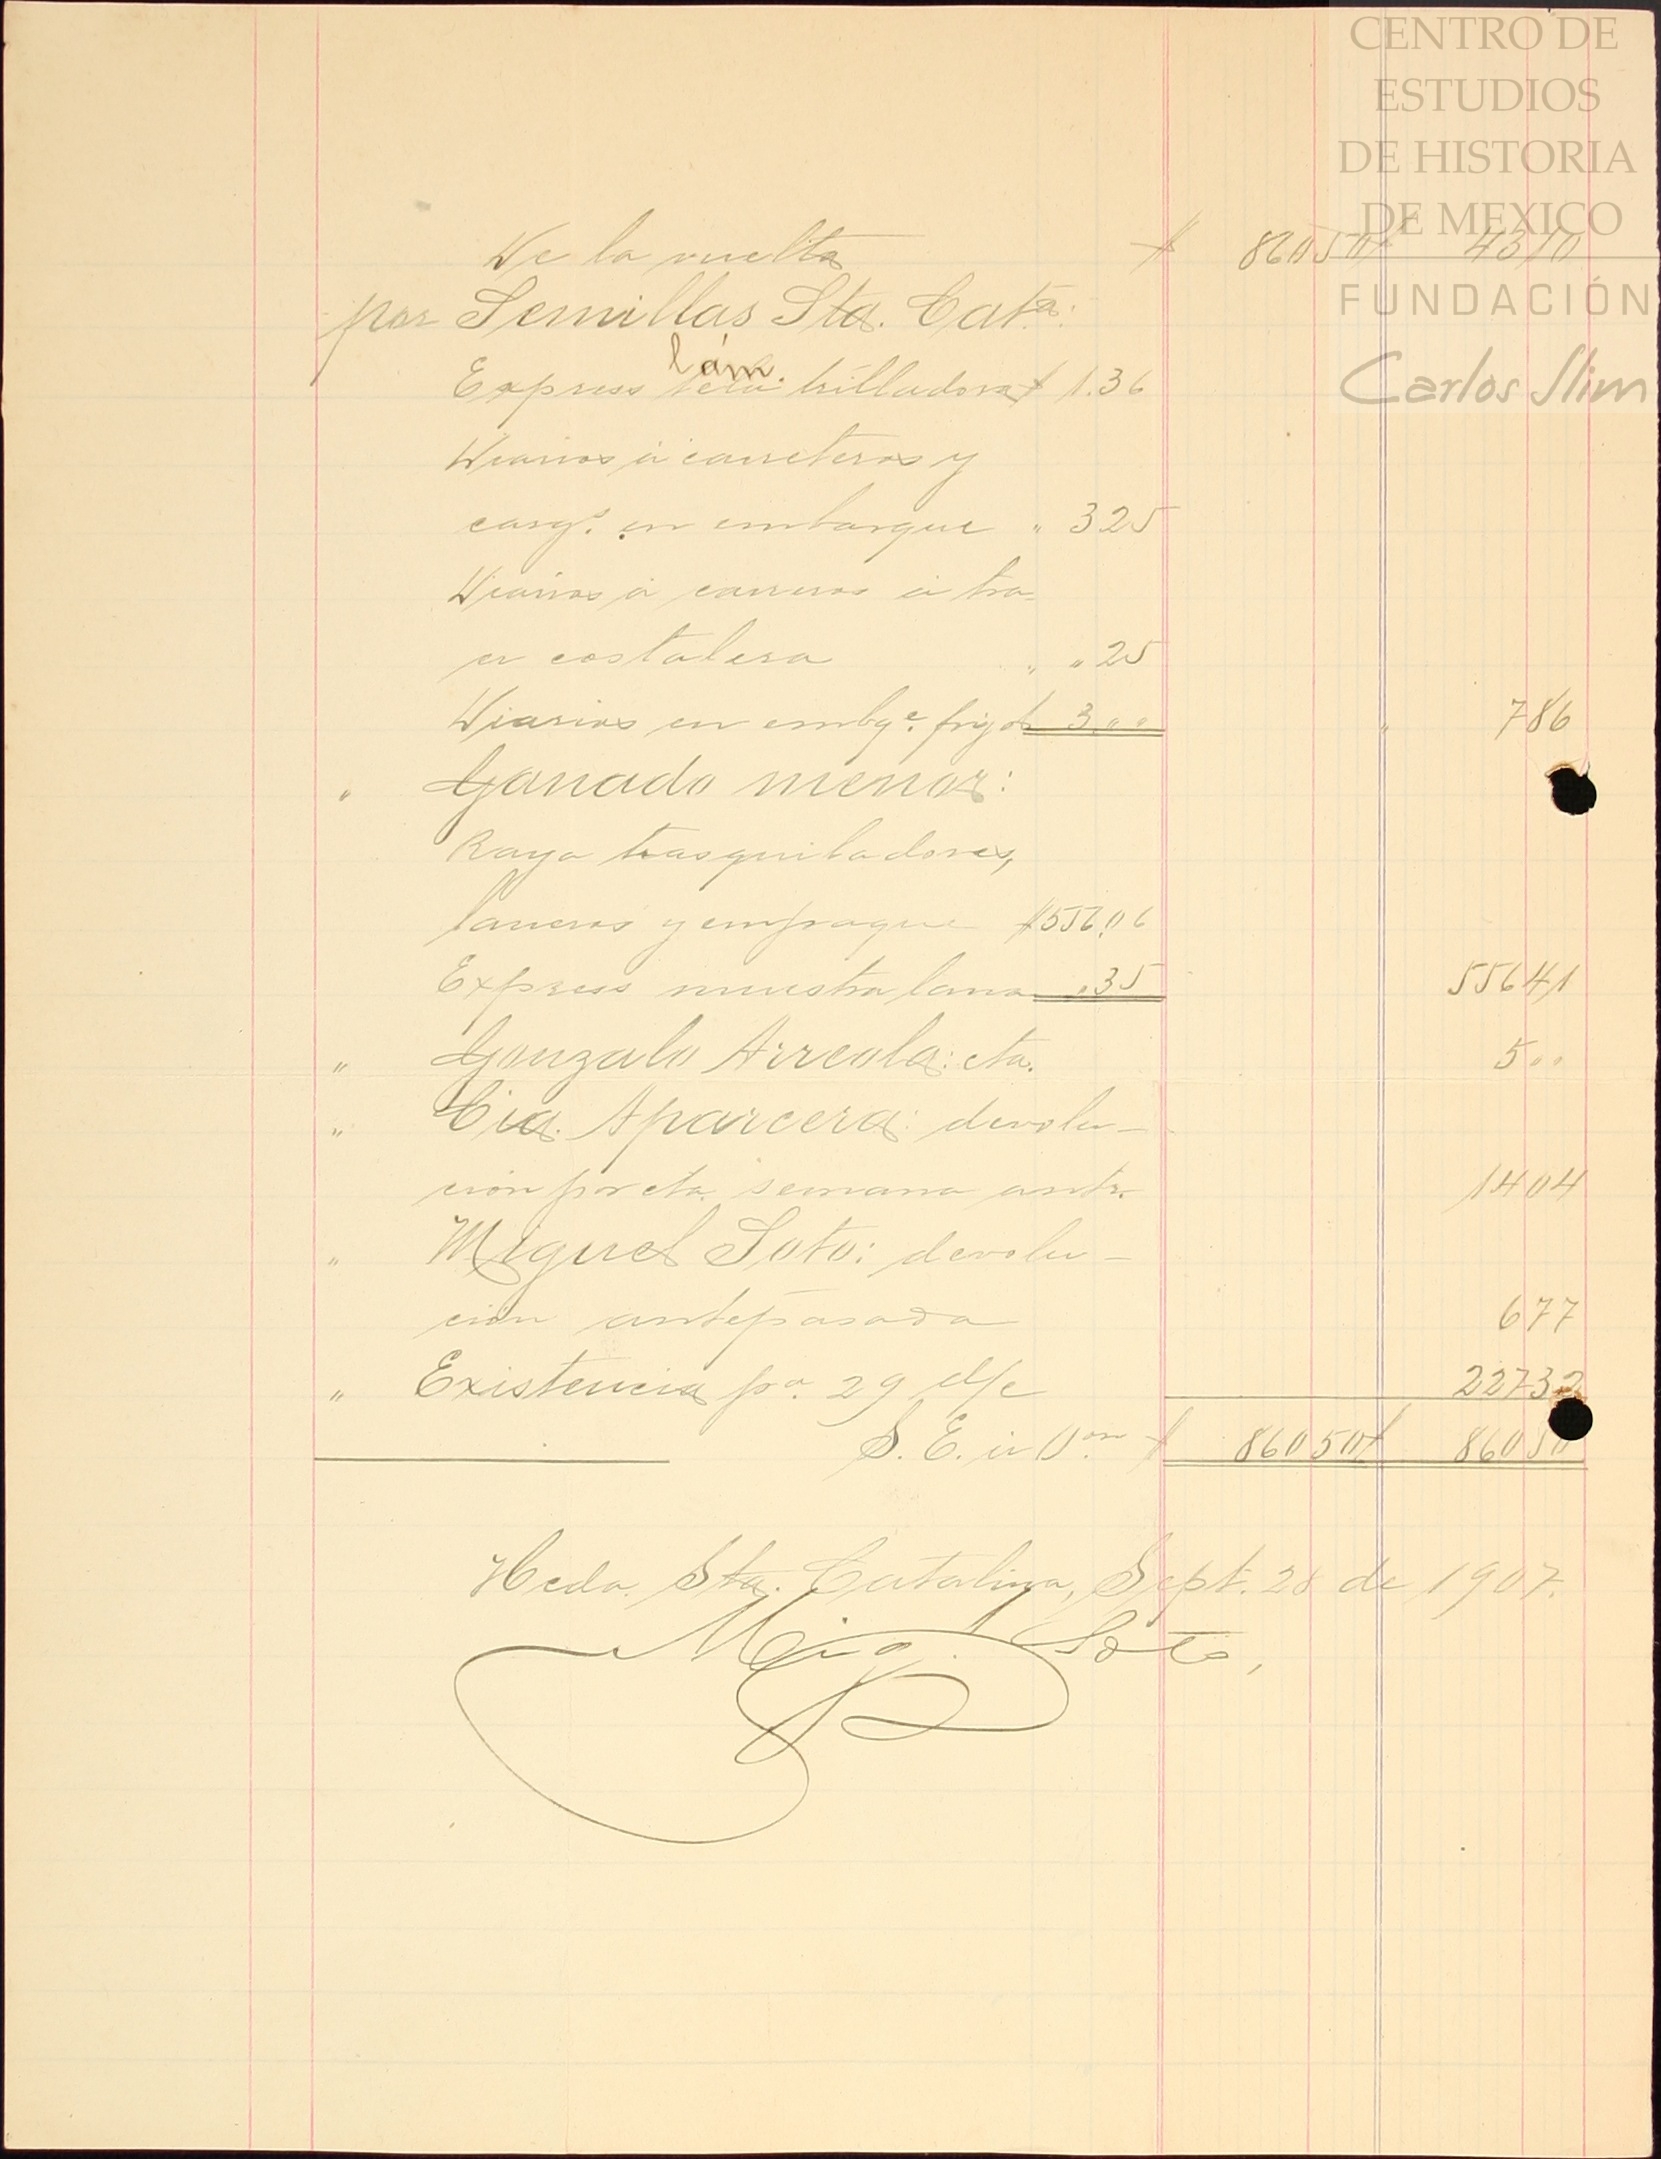 CENTRO DE
ESTUDIOS
DE HISTORIA
DE MEXICO
FUNDACIÓN
Carlos Slim
De la vuelta $ 86050 $ 4310
por Semillas Sta. Catª:
lám.
Express trilladora $ 1.36
Diarios á carreteros y
cargˢ. en embarque " 325
Diarios á carreros á tra-
er costalera " " 25
Diarios en embqᵉ. frijol " 3 " " " 786
" Ganado menor:
Raya trasquiladores,
laneros y empaque $556.06
Express muestra lana " .35 55641
" Gonzalo Arreola: cta. 5 " "
" Cia. Aparcera: devolu-
ción por cta. semana antr. 1404
" Miguel Soto: devolu-
ción antepasada 677
" Existencia pª 29 d/c 22732
S. E. ú Oᵒⁿ $ 86050 $ 86050
Hcda. Sta. Catalina, Sept. 28 de 1907.
Mig. Soto,